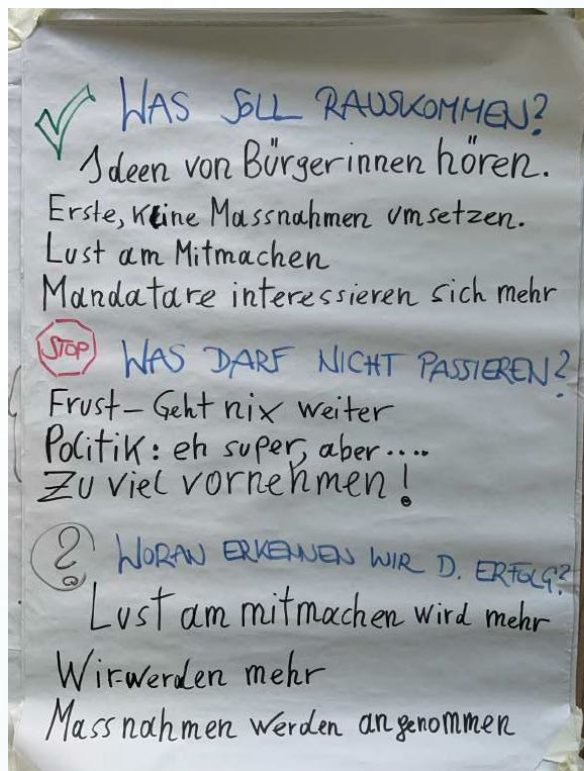 WAS SOLL RAUSKOMMEN?
Ideen von Bürgerinnen hören.
Erste, kleine Massnahmen umsetzen.
Lust am Mitmachen
Mandatare interessieren sich mehr
STOP WAS DARF NICHT PASSIEREN?
Frust – Geht nix weiter
Politik: eh super, aber ....
Zu viel vornehmen!
? WORAN ERKENNEN WIR D. ERFOLG?
Lust am mitmachen wird mehr
Wir werden mehr
Massnahmen werden angenommen